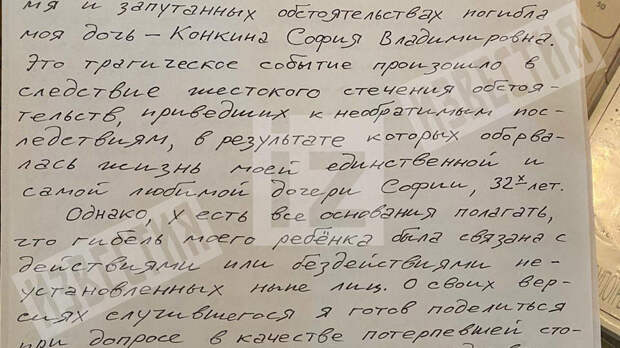 мя и запутанных обстоятельствах погибла
моя дочь – Конкина София Владимировна.
Это трагическое событие произошло в
следствие жестокого стечения обстоя-
тельств, приведших к необратимым пос-
ледствиям, в результате которых оборва-
лась жизнь моей единственной и
самой любимой дочери Софии, 32х лет.
Однако, х есть все основания полагать,
что гибель моего ребёнка была связана с
действиями или бездействиями не-
установленных ныне лиц. О своих вер-
сиях случившегося я готов поделиться
при допросе в качестве потерпевшей сто-
ИЗВЕСТИЯ
ИЗВЕСТИЯ